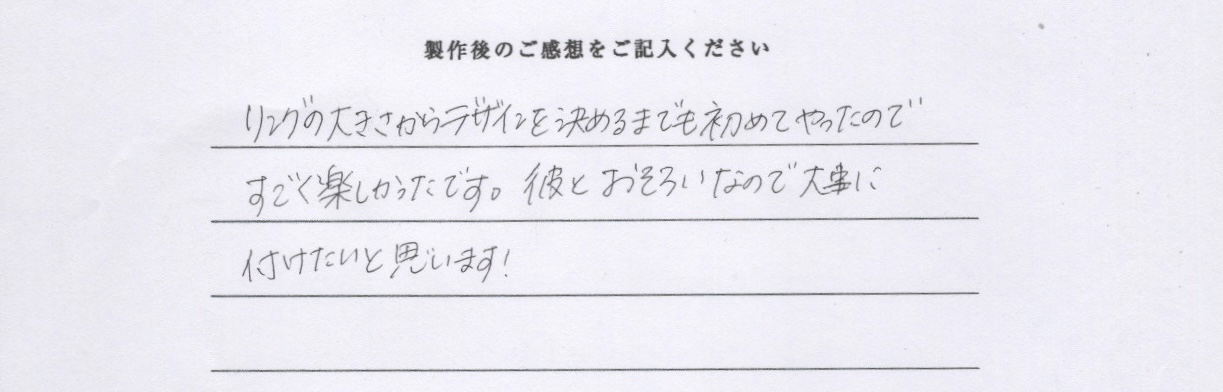 製作後のご感想をご記入ください
リングの大きさからデザインを決めるまでも初めてやったので
すごく楽しかったです。彼とおそろいなので大事に
付けたいと思います!